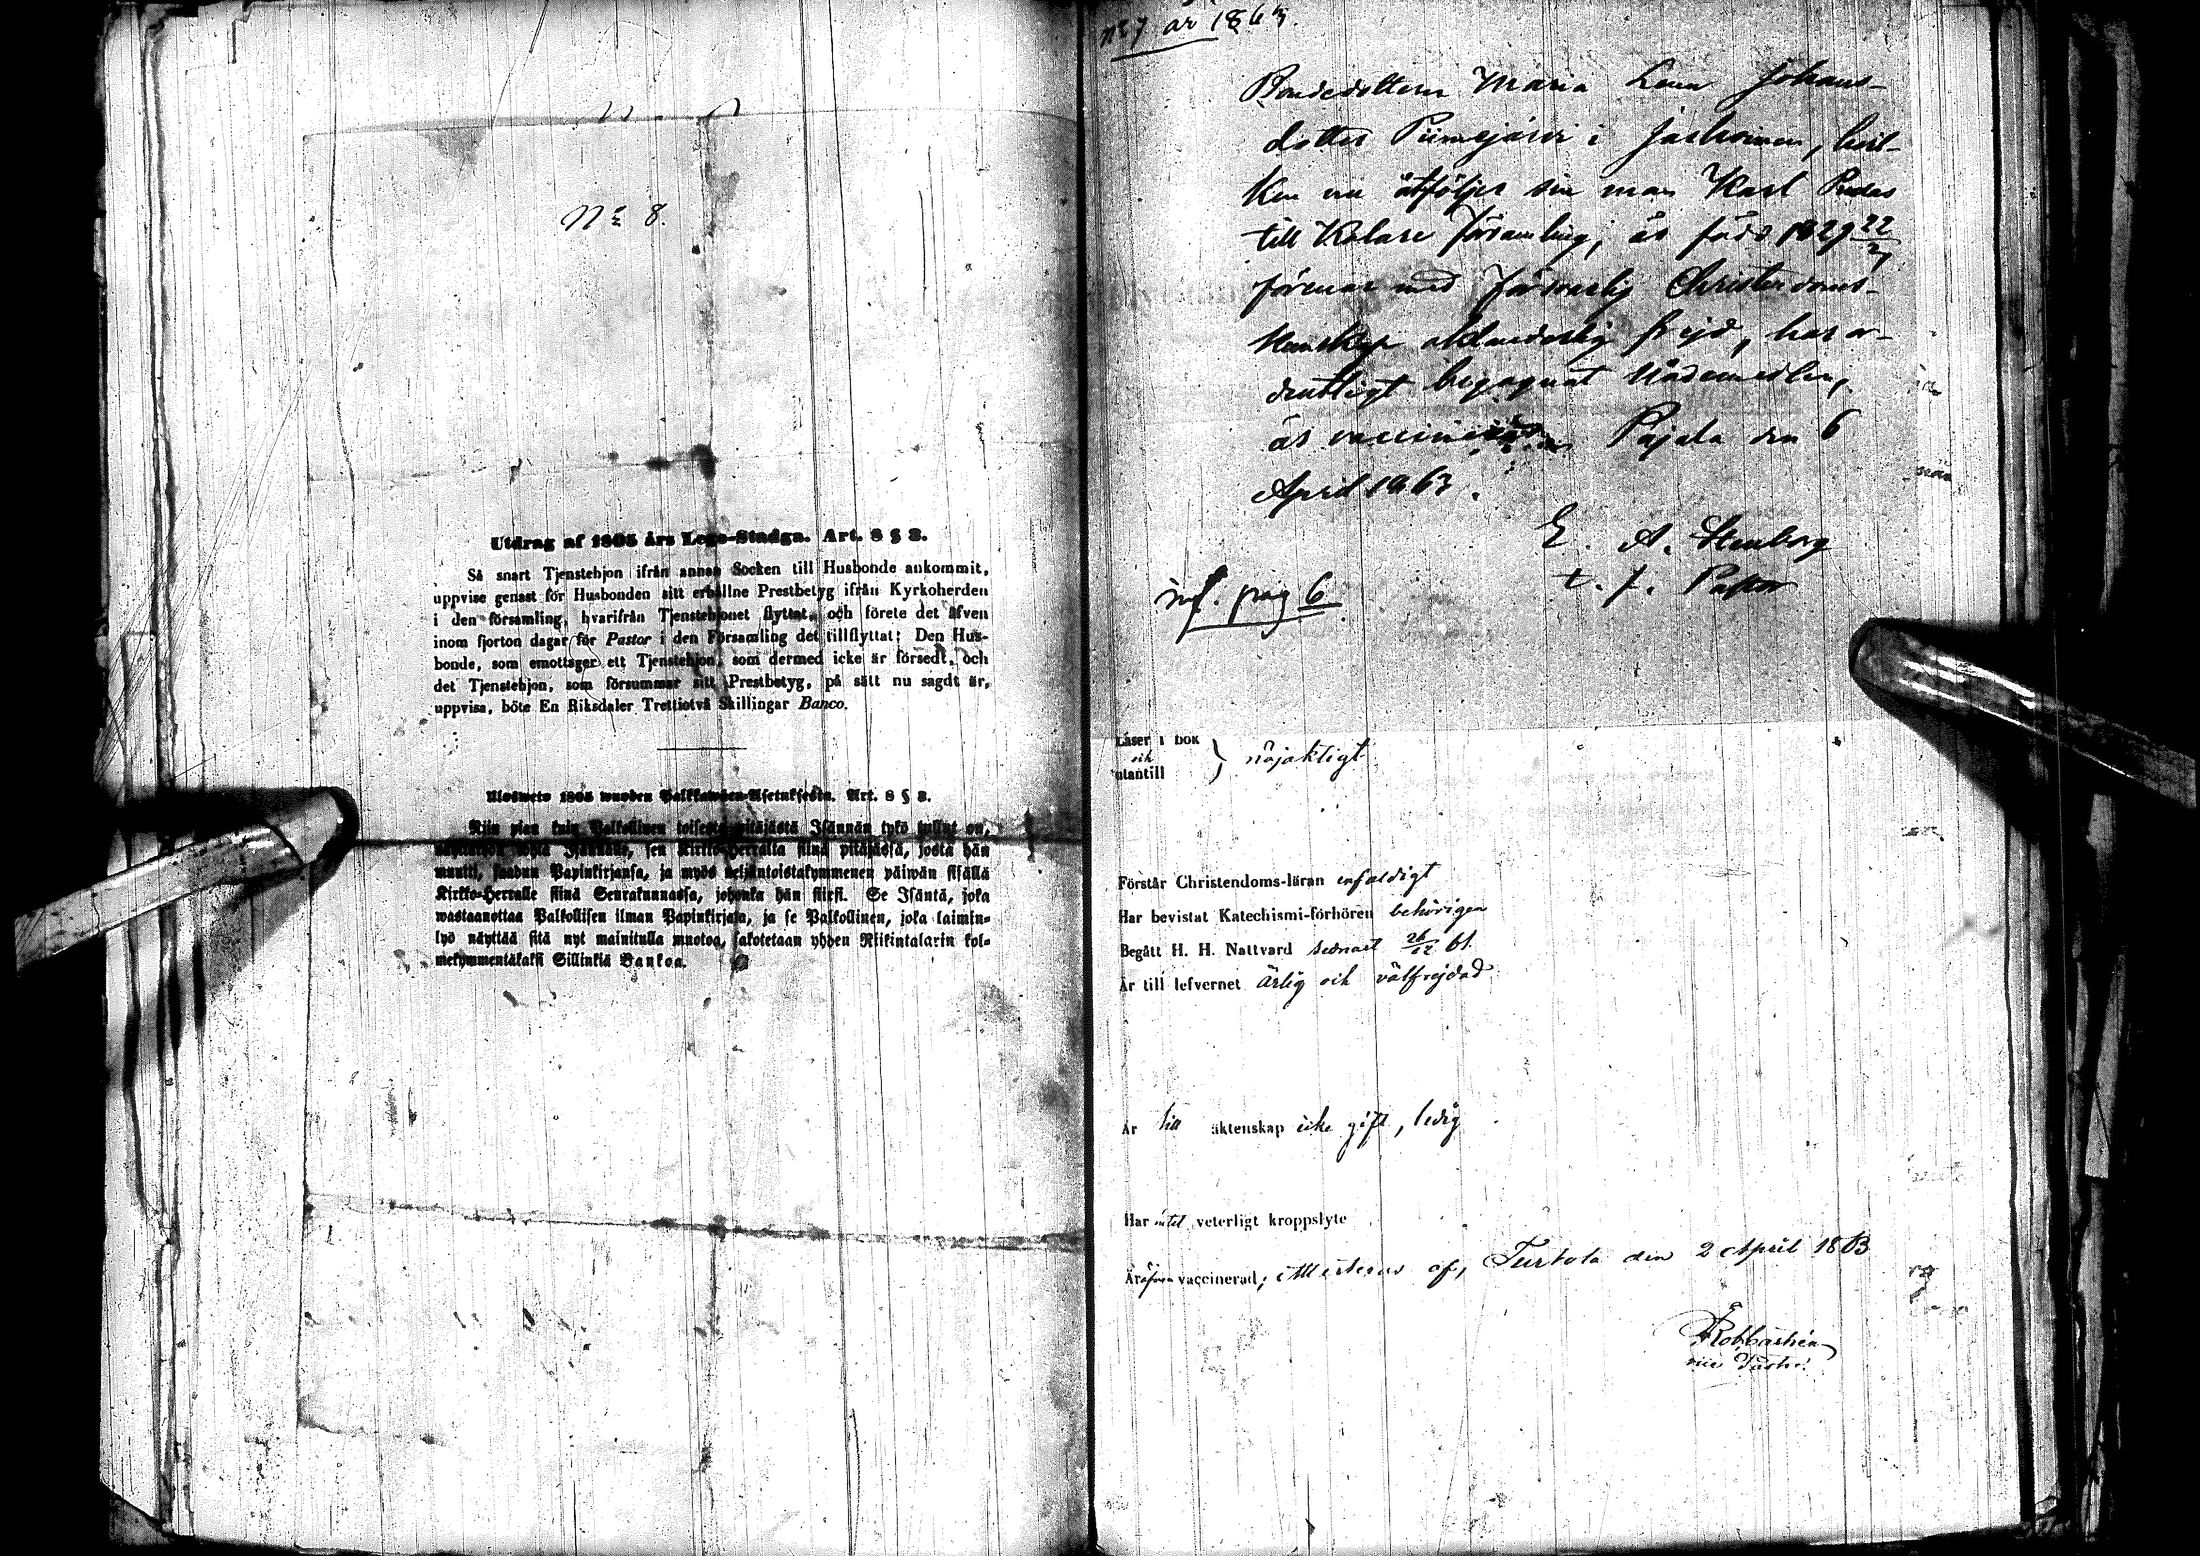 No 8.
Utdrag af 1805 års Lego-Stadga. Art. 8 § 3.
Så snart Tjenstehjon ifrån annan Socken till Husbonde ankommit,
uppvise genast för Husbonden sitt erhållne Prestbetyg ifrån Kyrkoherden
i den församling, hvarifrån Tjenstehjonet flyttat, och förete det äfven
inom fjorton dagar för Pastor i den Församling det tillflyttat: Den Hus-
bonde, som emottager ett Tjenstehjon, som dermed icke är försedt, och
det Tjenstehjon, som försummar sitt Prestbetyg, på sätt nu sagdt är,
uppvisa, böte En Riksdaler Trettiotvå Skillingar Banco.
Ulosweto 1805 wuoden Palkkawäen-Asetuksesta. Art. 8 § 3.
Niin pian kuin Palkollinen toisesta pitäjästä Isännän tykö tullut on,
Isännäns, sen Kirkko-Herralta siinä pitäjässä, josta hän
muutti, saadun Papinkirjansa, ja myös neljäntoistakymmenen päiwän sisällä
Kirkko-Herralle siinä Seurakunnassa, johonka hän siirsi. Se Isäntä, joka
wastaanottaa Palkollisen ilman Papinkirjata, ja se Palkollinen, joka laimin-
lyö näyttää sitä nyt mainitulla muotoa, sakotetaan yhden Riikintalarin kol-
mekymmentäkaksi Sillinkiä Bankoa.
No 7 år 1863.
Bondedottern Maria Lena Johans-
dotter i Jarhoinen, hvil-
ken nu åtföljer sin man Karl Rudas
till Kolare församling, är född 1829 22/7
förenar med försvarlig Christendoms-
kunskap oklanderlig frejd, har or-
dentligt begagnat Nådemedlen,
är vaccinerad. Pajala den 6
April 1863.
E. A. Stenborg
t. f. Pastor
inf. pag 6
Läser i bok
och
utantill } nöjaktigt
Förstår Christendoms-läran enfaldigt
Har bevistat Katechismi-förhören behörigen
Begått H. H. Nattvard sednast 26/12 61.
Är till lefvernet ärlig och välfrejdad
Är till äktenskap icke gift, ledig
Har intet veterligt kroppslyte
Är äfven vaccinerad; attesteras af, Turtola den 2 April 1863
vice Pastor.